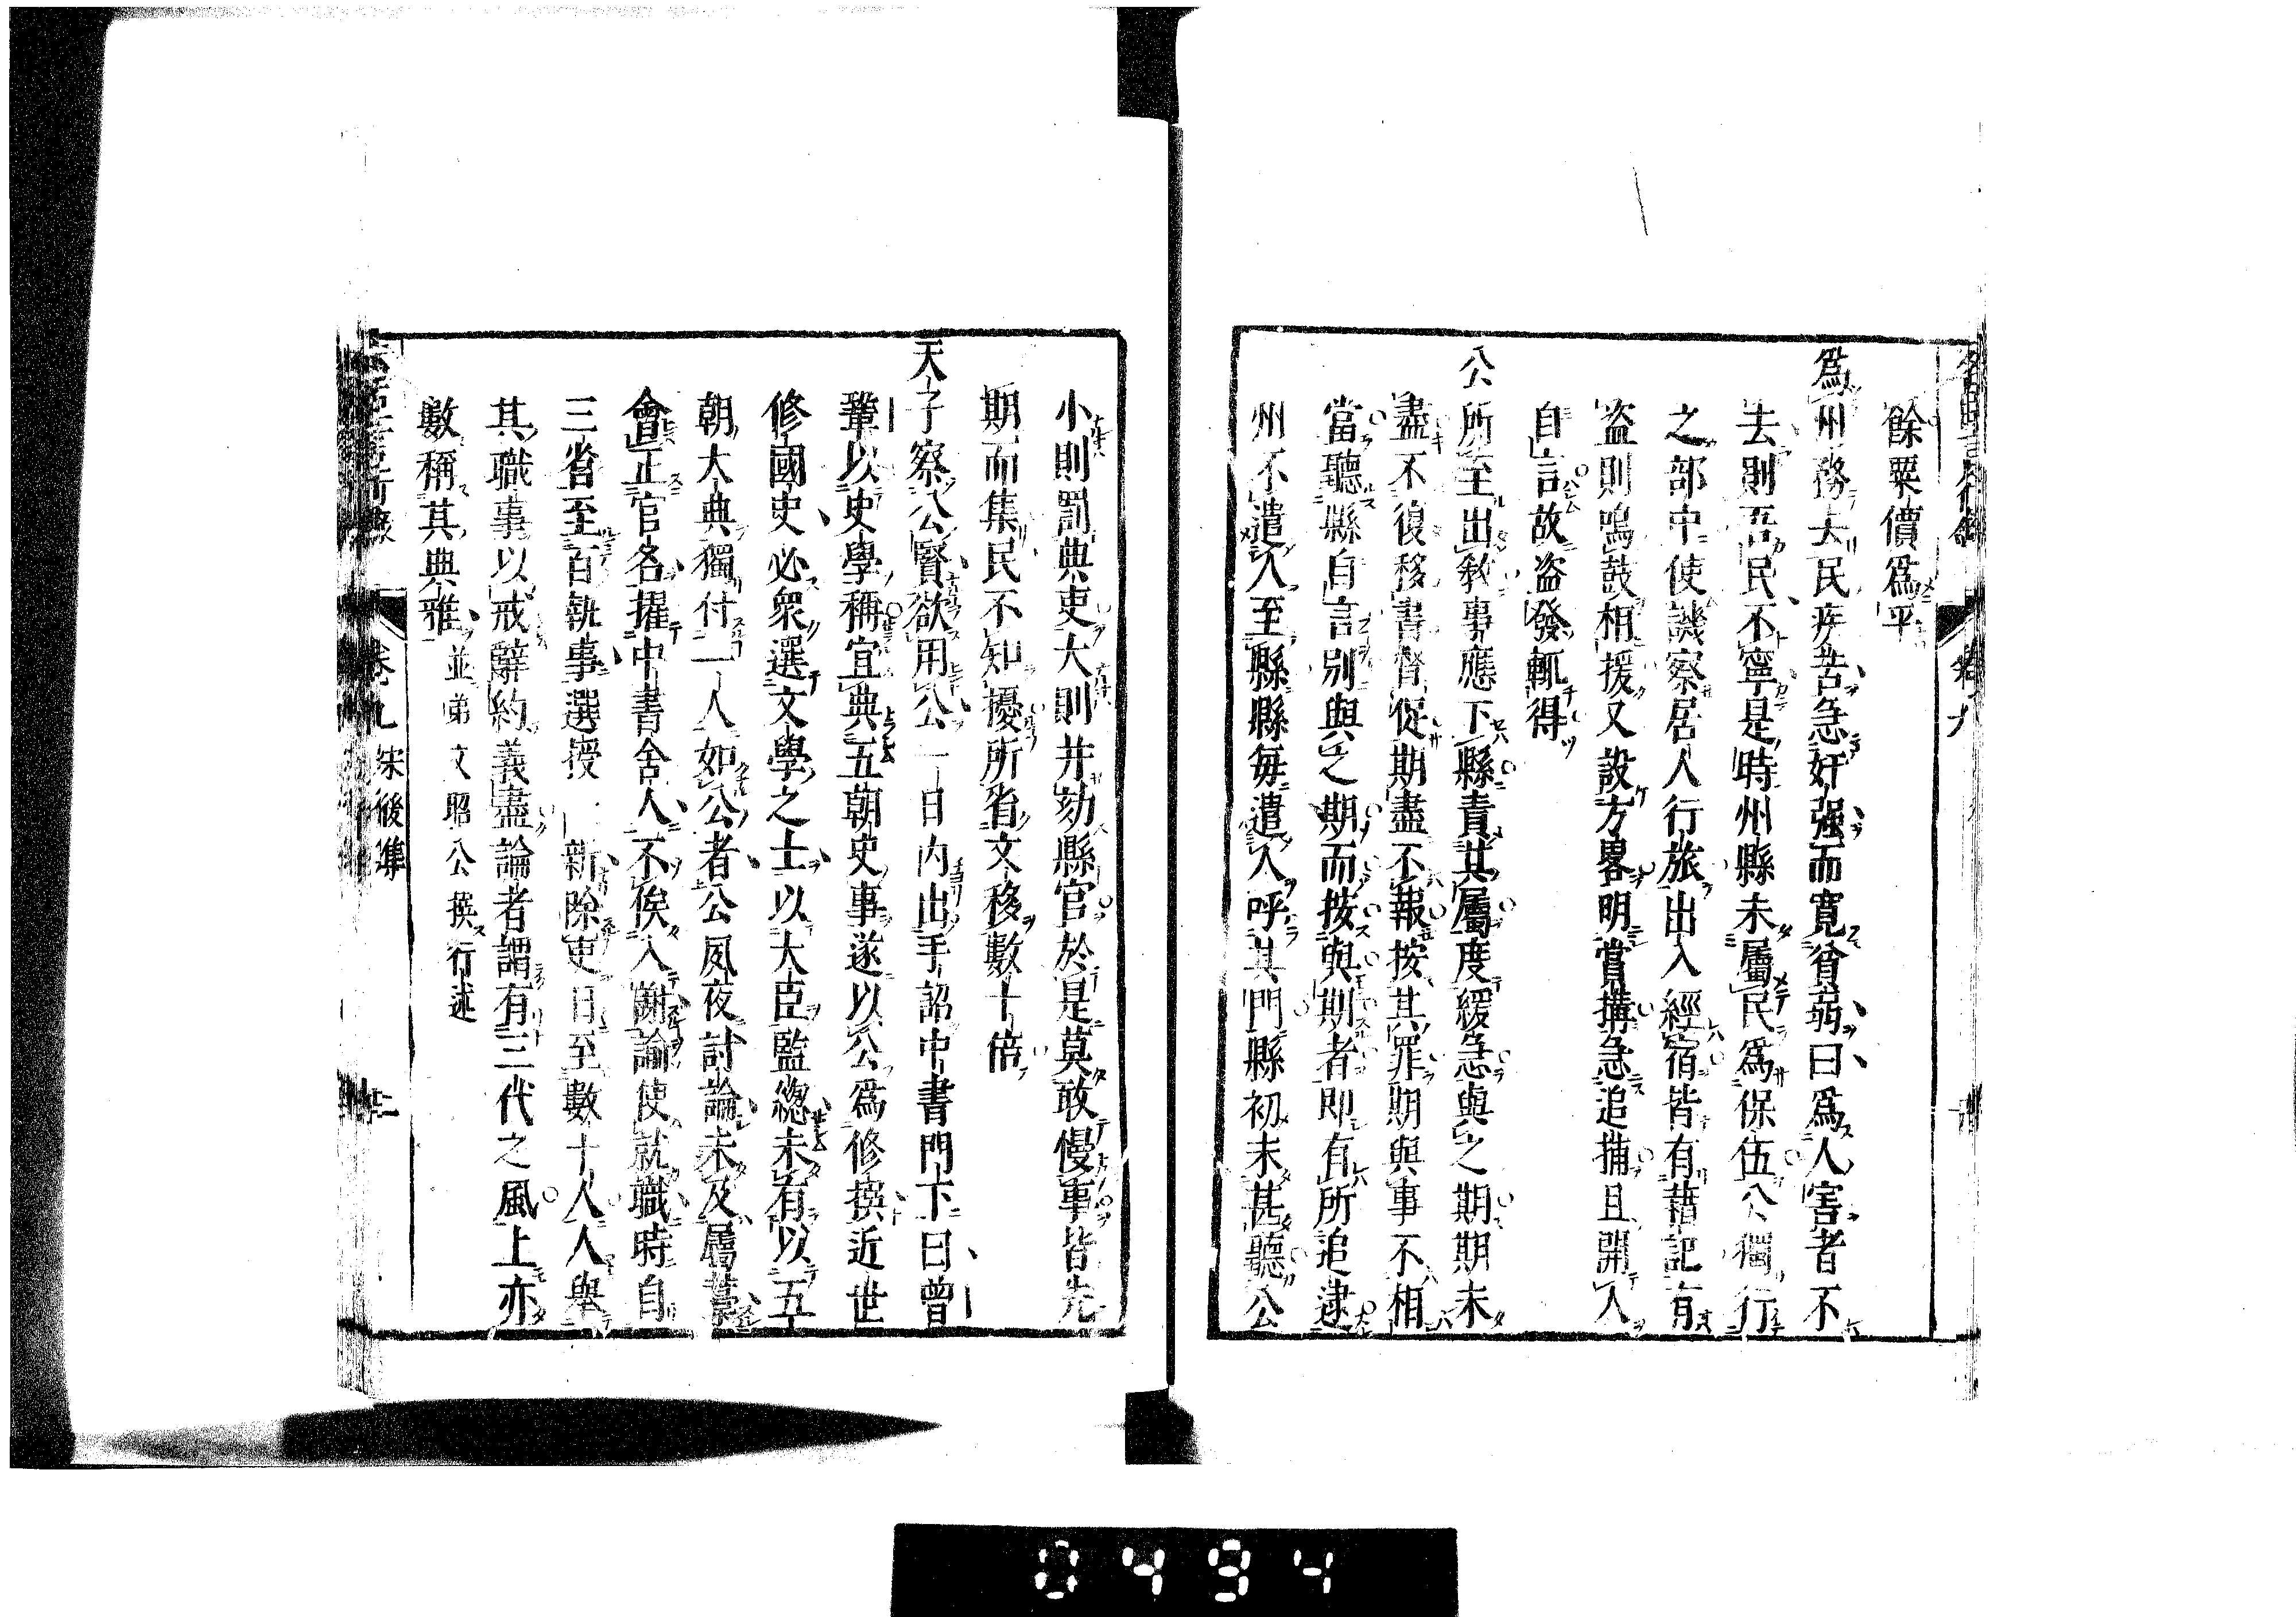 餘粟價爲平
爲州務去民疾苦急奸强而寛貧弱曰爲人害者不
去則吾民不寧是時州縣未屬民爲保伍公獨行
之部中使譏察居人行旅出入經宿皆有籍記有
盗則鳴鼓相援又設方畧明賞購急追捕且開人
自言故盗發輒得
公所至出敎事應下縣責其屬度緩急與之期期未
盡不復移書督促期盡不報按其罪期與事不相
當聽縣自言別與之期而按與期者即有所追逮
州不遣人至縣縣毎遣人呼其門縣初未甚聽公
小則罰典吏大則并劾縣官於是莫敢慢事皆先
期而集民不知擾所省文移數十倍
天子察公賢欲用公一日内出手詔中書門下曰曾
鞏以史學稱宜典五朝史事遂以公爲修撰近世
修國史必衆選文學之士以大臣監總未有以五
朝大典獨付一人如公者公夙夜討論未及屬藁
會正官名擢中書舍人不俟入謝諭使就職時自
三省至百執事選授一新除吏日至數十人人舉
其職事以戒辭約義盡論者謂有三代之風上亦
數稱其典雅 並弟文昭公撰行述
卷九